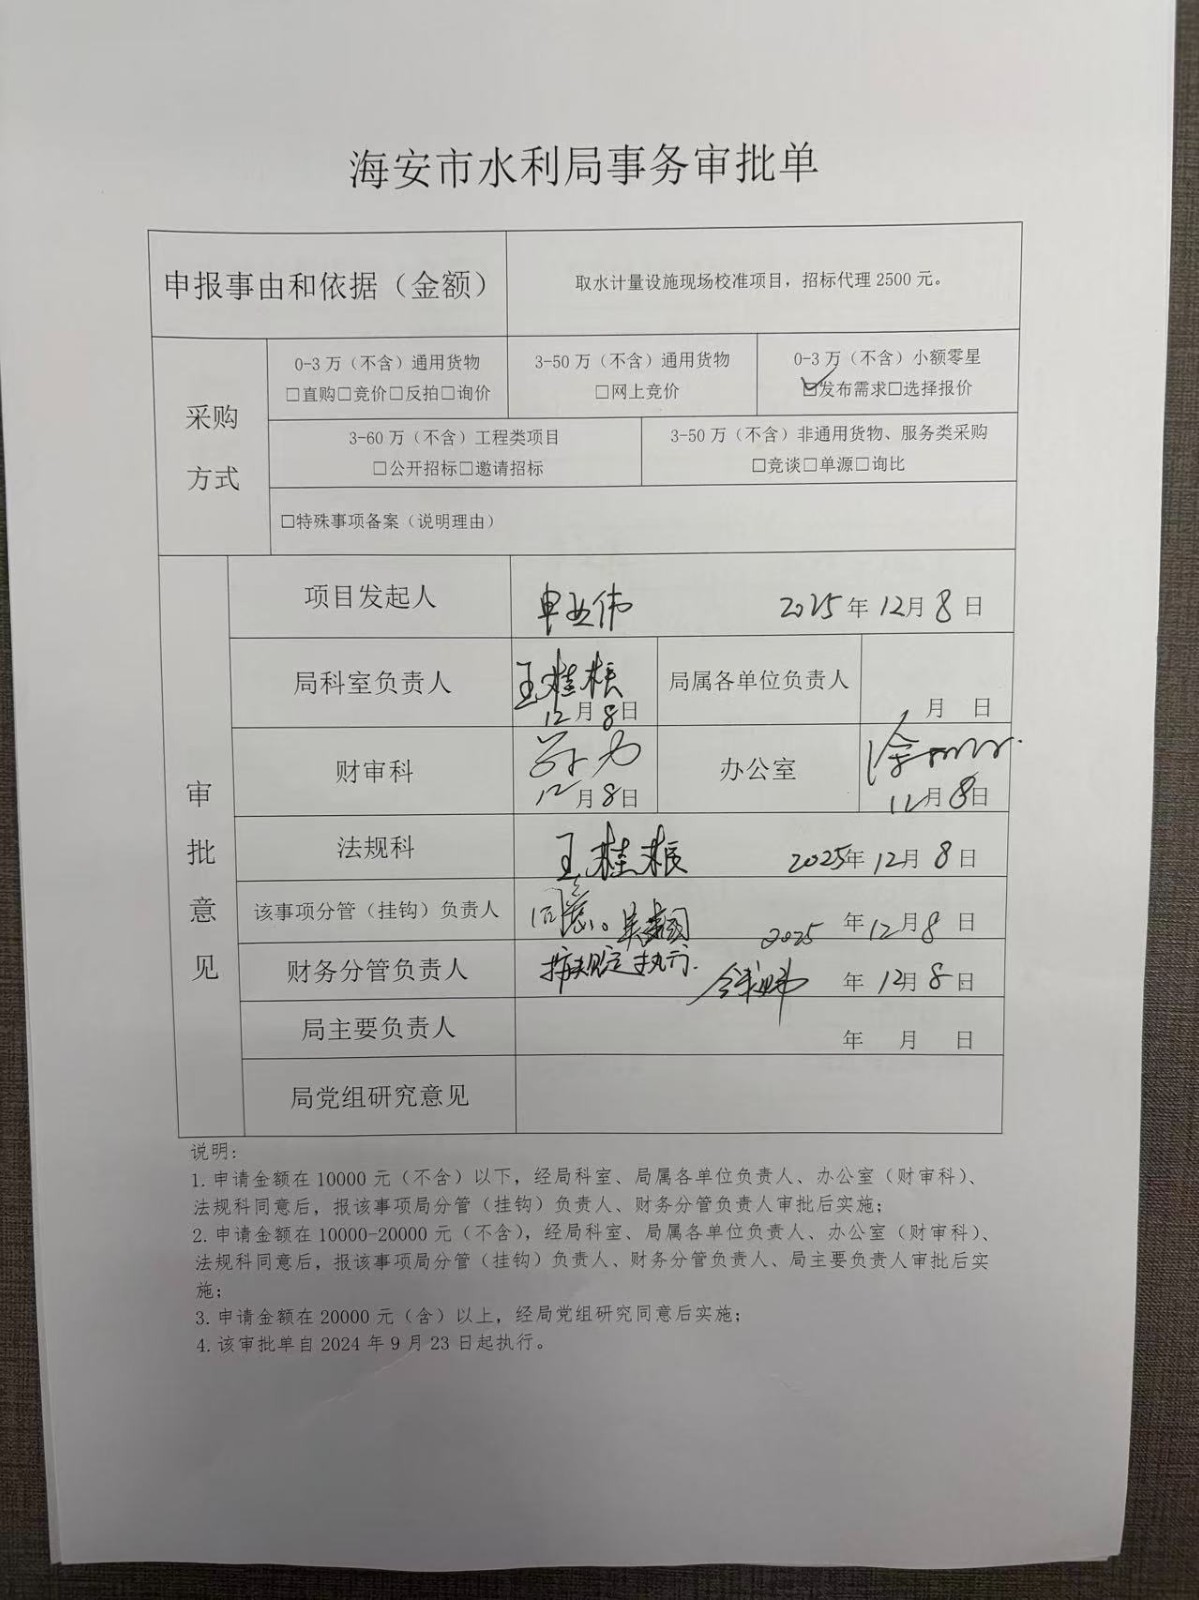 海安市水利局事务审批单
申报事由和依据（金额）
取水计量设施现场校准项目，招标代理 2500 元。
采购
方式
0-3 万（不含）通用货物
□直购□竞价□反拍□询价
3-50 万（不含）通用货物
□网上竞价
0-3 万（不含）小额零星
☑发布需求□选择报价
3-60 万（不含）工程类项目
□公开招标□邀请招标
3-50 万（不含）非通用货物、服务类采购
□竞谈□单源□询比
□特殊事项备案（说明理由）
审
批
意
见
项目发起人
2025 年 12 月 8 日
局科室负责人
王桂根
12 月 8 日
局属各单位负责人
月 日
财审科
12 月 8 日
办公室
12 月 8 日
法规科
王桂根 2025 年 12 月 8 日
该事项分管（挂钩）负责人
同意。 2025 年 12 月 8 日
财务分管负责人
按规定执行. 年 12 月 8 日
局主要负责人
年 月 日
局党组研究意见
说明：
1. 申请金额在 10000 元（不含）以下，经局科室、局属各单位负责人、办公室（财审科）、
法规科同意后，报该事项局分管（挂钩）负责人、财务分管负责人审批后实施；
2. 申请金额在 10000-20000 元（不含），经局科室、局属各单位负责人、办公室（财审科）、
法规科同意后，报该事项局分管（挂钩）负责人、财务分管负责人、局主要负责人审批后实
施；
3. 申请金额在 20000 元（含）以上，经局党组研究同意后实施；
4. 该审批单自 2024 年 9 月 23 日起执行。